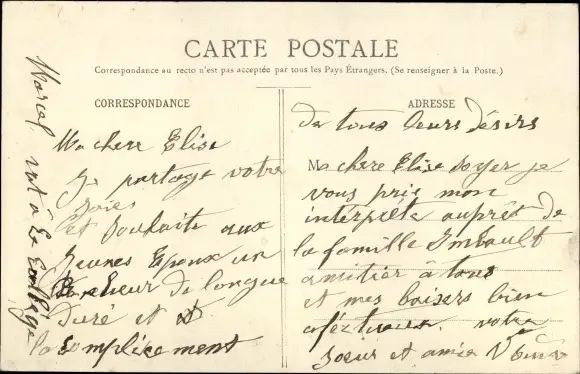 CARTE POSTALE
Correspondance au recto n'est pas acceptée par tous les Pays Étrangers. (Se renseigner à la Poste.)
CORRESPONDANCE
Ma chere Elise
Je partage votre
joies
et souhaite aux
Jeunes Epoux un
Bonheur de longue
Duré et
la complicement
Marcel
ADRESSE
De tous leurs désirs
Ma chere Elise soyez je
vous prie mon
interpréte auprêt de
la famille Imbault
amitier à tous
et mes baisers bien
aféztueux. votre
soeur et amie